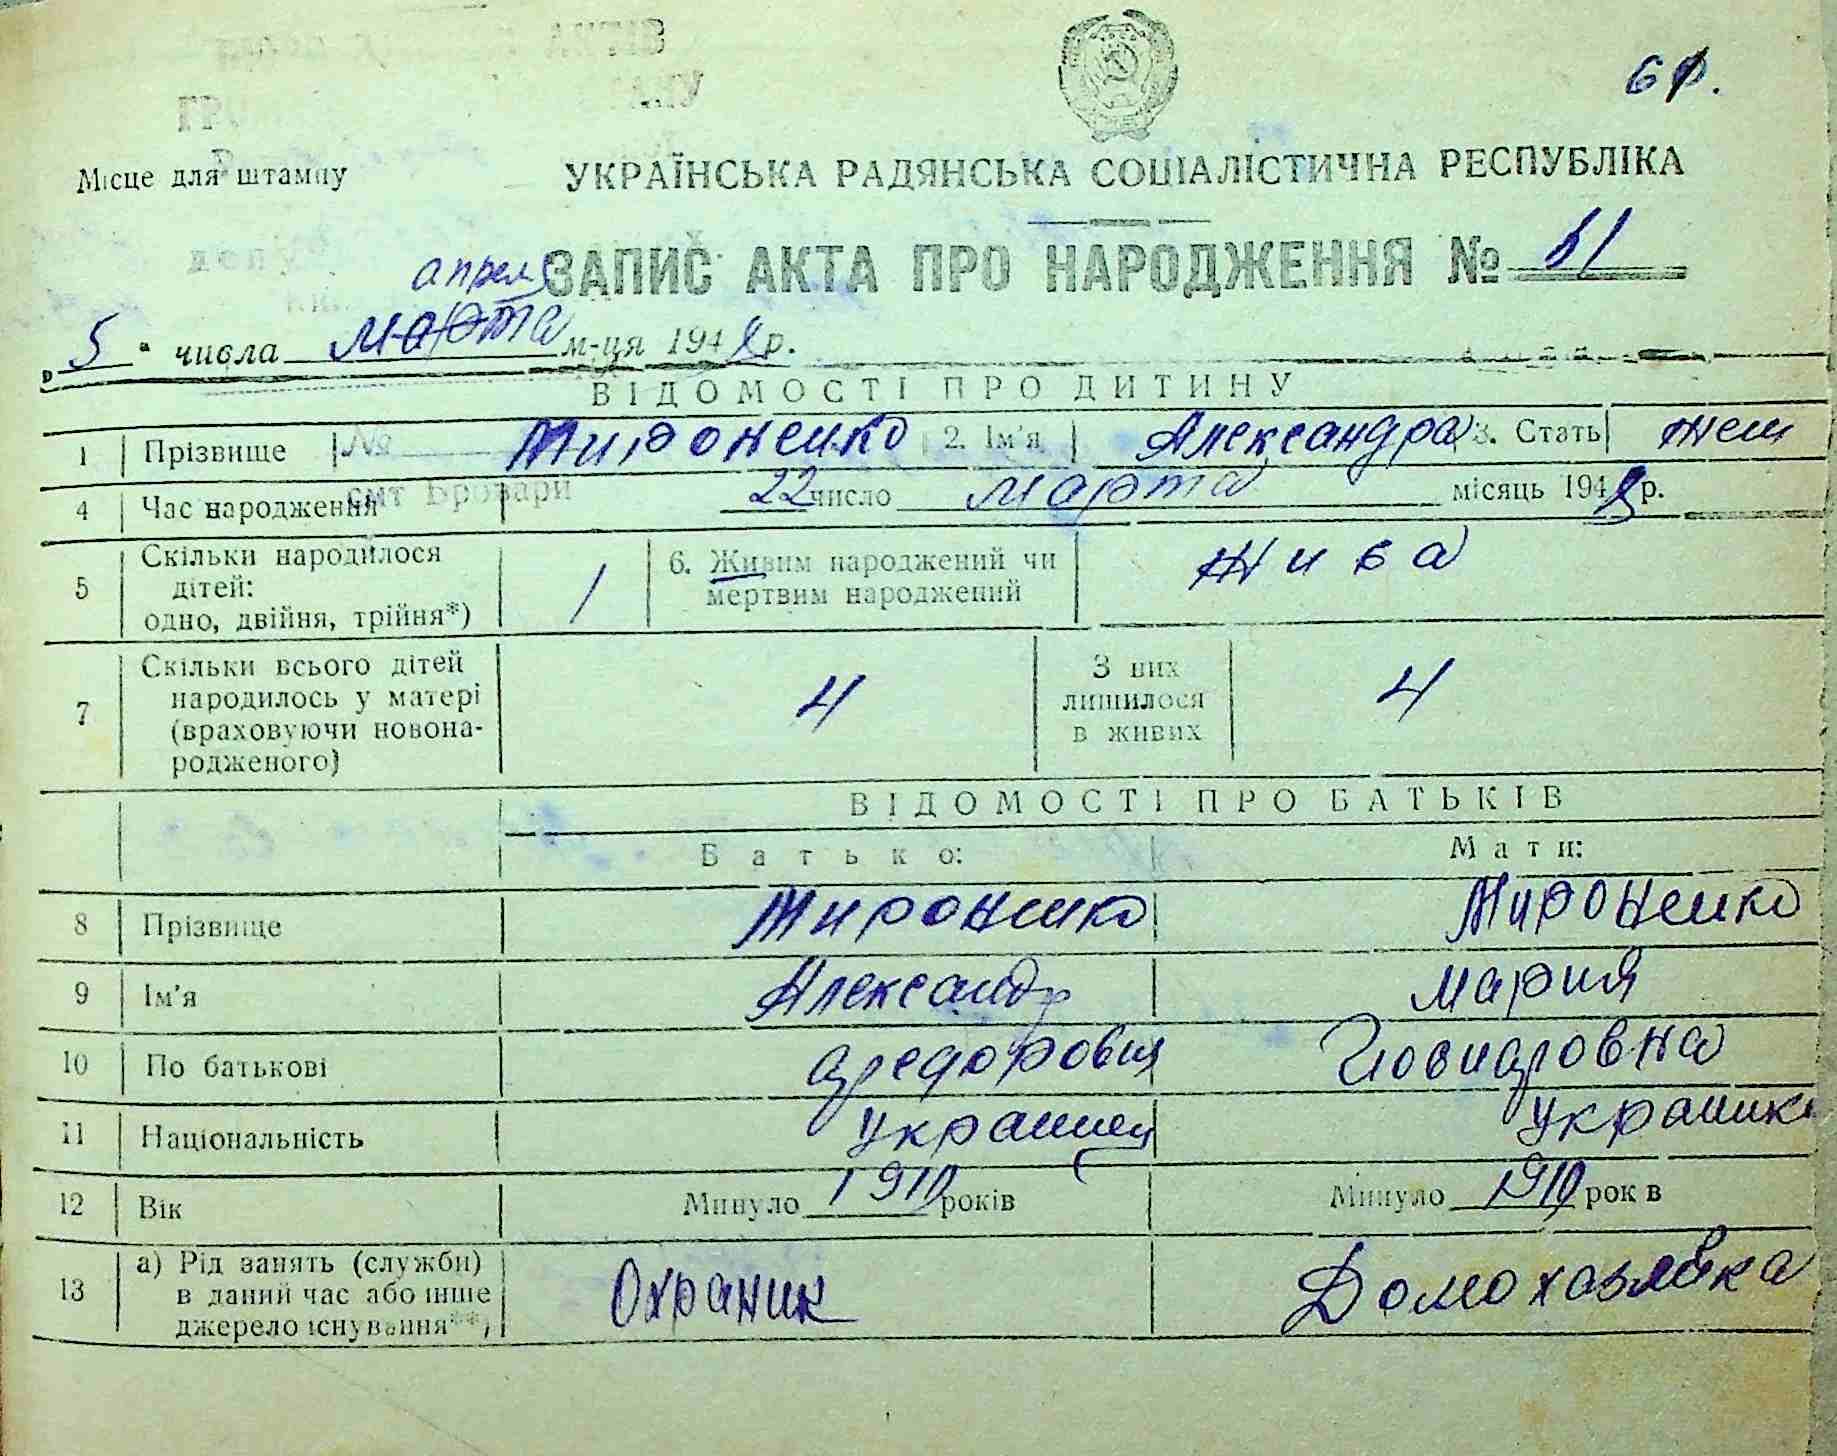 61.
Місце для штампу
УКРАЇНСЬКА РАДЯНСЬКА СОЦІАЛІСТИЧНА РЕСПУБЛІКА
ЗАПИС АКТА ПРО НАРОДЖЕННЯ № 61
апреля
5 " числа марта м-ця 1948 р.
ВІДОМОСТІ ПРО ДИТИНУ
1 Прізвище Мироненко 2. Ім'я Александра 3. Стать жен
№
смт Бровари
4 Час народження 22 число марта місяць 1948 р.
5 Скільки народилося дітей: одно, двійня, трійня*) 1 6. Живим народжений чи мертвим народжений Жива
7 Скільки всього дітей народилось у матері (враховуючи новонародженого) 4 З них лишилося в живих 4
ВІДОМОСТІ ПРО БАТЬКІВ
Батько: Мати:
8 Прізвище Мироненко Мироненко
9 Ім'я Александр Мария
10 По батькові Федорович
11 Національність украинец украинк
12 Вік Минуло 1910 років Минуло 1910 років
13 а) Рід занять (служби) в даний час або інше джерело існування**) Охраник Домохазяйка